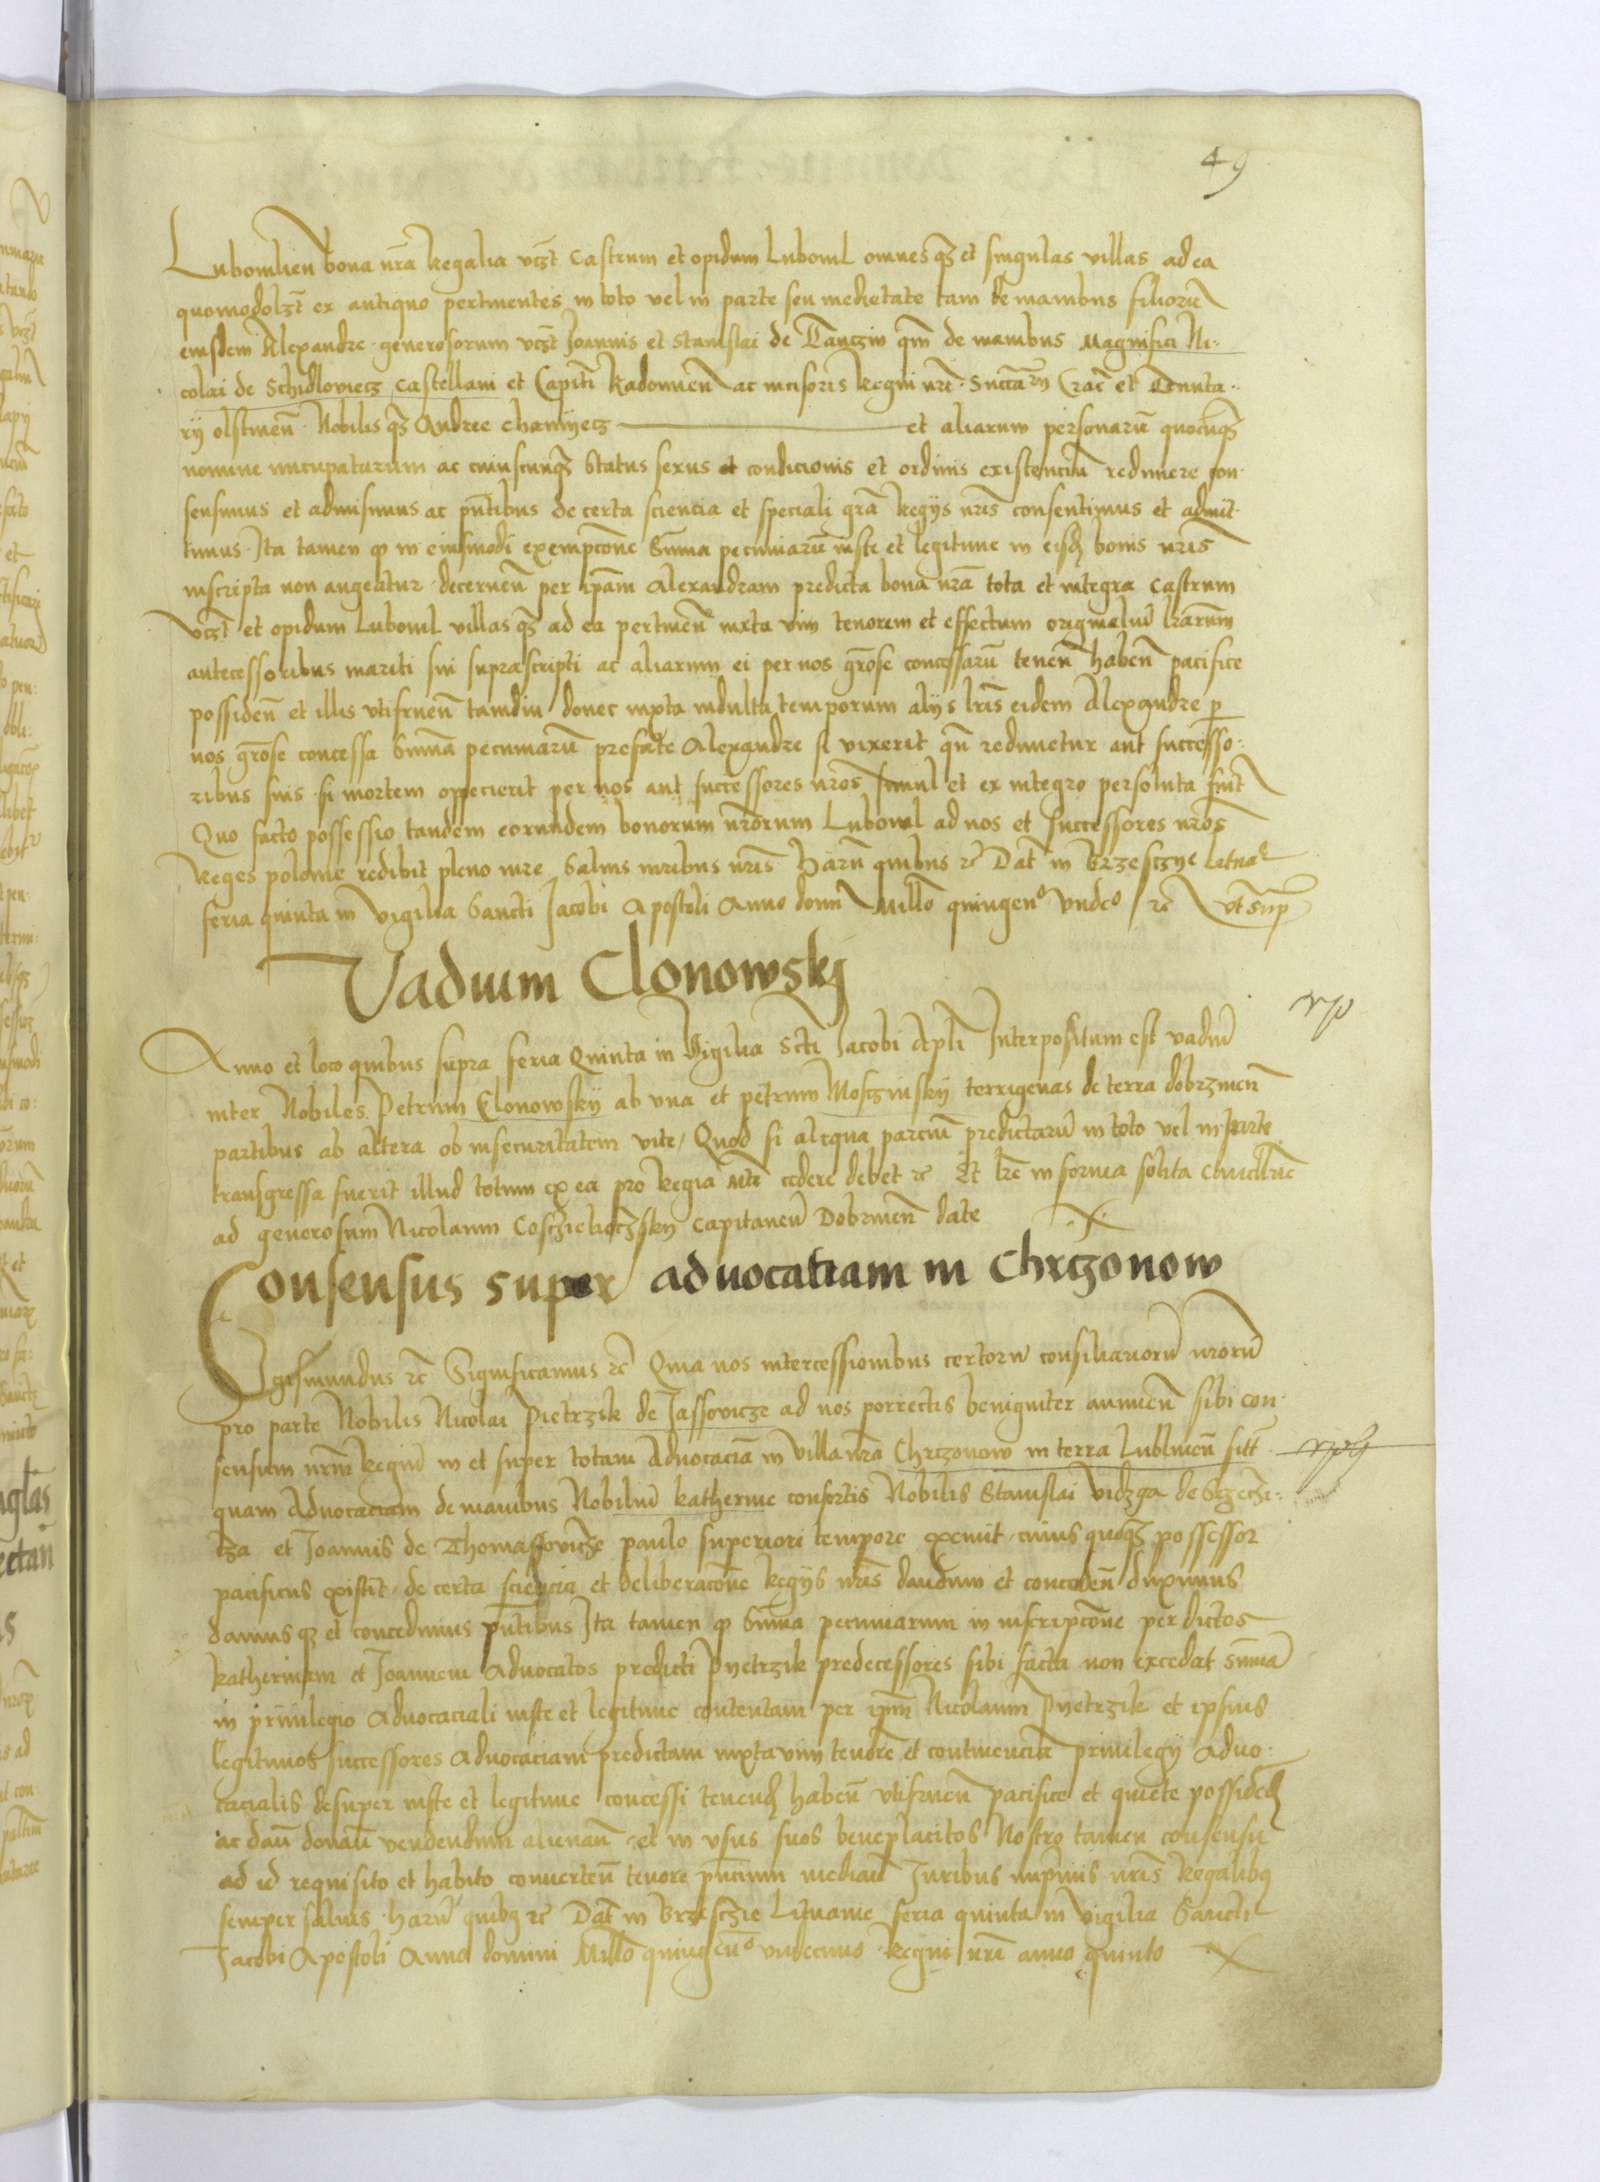 49
Lubomlien̄ bona nr̄a Regalia vcꝫt Castrum et opidum Luboml omnes qꝫ et singulas villas ad ea
quomodolꝫt ex antiquo pertinentes in toto vel in parte seu medietate tam de manibus filiorū
eiusdem Alexandre generosorum vcꝫt Joannis et Stanislai de Tanczin qm̄ de manibus Magnifici Ni-
colai de Schidloviecz Castellani et Capiti Radomien̄ ac incisoris Regni nr̄i Succarij Crac̄ et Tenuta-
rij olstinen̄ Nobilis qꝫ Andree chamyecz et aliarum personarū quocūqꝫ
nomine nuncupatarum ac cuiuscunqꝫ status sexus et condicionis et ordinis existenciū redimere con-
sensimus et admisimus ac pn̄tibus de certa sciencia et speciali gr̄a Regijs nr̄is consentimus et admit-
timus Ita tamen ꝙ in eiusmodi exempcone Sum̄a pecuniarū iuste et legitime in eisdē bonis nr̄is
inscripta non augeatur decernen̄ per ip̄am Alexandram predicta bona nr̄a tota et integra Castrum
vcꝫt et opidum Luboml villas qꝫ ad ea pertinen̄ iuxta vim tenorem et effectum originaliū lr̄arum
antecessoribus mariti sui suprascripti ac aliarum ei per nos gr̄ose concessarū tenen̄ haben̄ pacifice
possiden̄ et illis vtifruen̄ tamdiu donec iuxta indulta temporum alijs lr̄is eidem Alexandre p
nos gr̄ose concessa Sum̄a pecuniarū prefate Alexandre si vixerit qn̄ redimetur aut successo-
ribus suis si mortem oppecierit per nos aut successores nr̄os simul et ex integro persoluta fuit
Quo facto possessio tandem eorundem bonorum nr̄orum Luboml ad nos et successores nr̄os
Reges polonie redibit pleno iure Salvis iuribus nr̄is Harū quibus ꝛc̄ Dat̄ in Brzesczye
feria quinta in vigilia Sancti Jacobi Apostoli Anno domi Mill̄o quingen° vndec° ꝛc̄ vt sup̄
Vadium Clonowskj
Anno et loco quibus supra feria Quinta in vigilia Scti Jacobi Apl̄i Interpositum est vadiū
inter Nobiles Petrum Clonowskij ab vna et petrum Mosczinskij terrigenas de terra dobrzinen̄
partibus ab altera ob insecuritatem vite Quod si aliqua parcium predictarū in toto vel in parte
transgressa fuerit illud totum ex ea pro Regia mte cedere debet ꝛc̄ Et lr̄e in forma solita
ad generosum Nicolaum capitaneū Dobrinen̄ date
Consensus super advocatiam in Chrczonow
Sigismundus ꝛc̄ Significamus ꝛc̄ Quia nos intercessionibus certorū consiliariorū nr̄orū
pro parte Nobilis Nicolai Pietrzik de Jassovicze ad nos porrectis benigniter annuen̄ sibi con-
sensum nr̄m Regiū in et super totam Advocaciā in villa nr̄a Chrczonow in terra Lublinen̄ sitt̄
quam Advocaciam de manibus Nobiliū Katherine consortis Nobilis Stanislai vidzga de Sczeczi-
cza et Joannis de Thomassovicze paulo superiori tempore exemit cuius quoqꝫ possessor
pacificus existit de certa sciencia et deliberacōne Regijs nr̄is dandum et conceden̄ duximus
damus qꝫ et concedimus pn̄tibus Ita tamen ꝙ Sum̄a pecuniarum in inscripcōne per dictos
Katherinam et Joannem Advocatos predicti Pyetrzik predecessores sibi facta non excedat Sum̄ā
in privilegio Advocaciali iuste et legitime contentam per ipm̄ Nicolaum Pyetrzik et ipsius
legitimos successores Advocaciam predictam iuxta vim tenorē et continenciā privilegij Advo-
cacialis desuper iuste et legitime concessi tenendi haben̄ vtifruen̄ pacifice et quiete possidedi
ac dan̄ donan̄ vendendum alienan̄ et in vsus suos beneplacitos Nostro tamen consensu
ad id requisito et habito converten̄ tenore pn̄cium median̄ Juribus nr̄is Regalibꝫ
semper salvis harū quibꝫ ꝛc̄ Dat̄ in Brzesczie Lituanie feria quinta in vigilia Sancti
Jacobi Apostoli Anno domini Mill̄o quingen° undecimo Regni nr̄i anno quinto